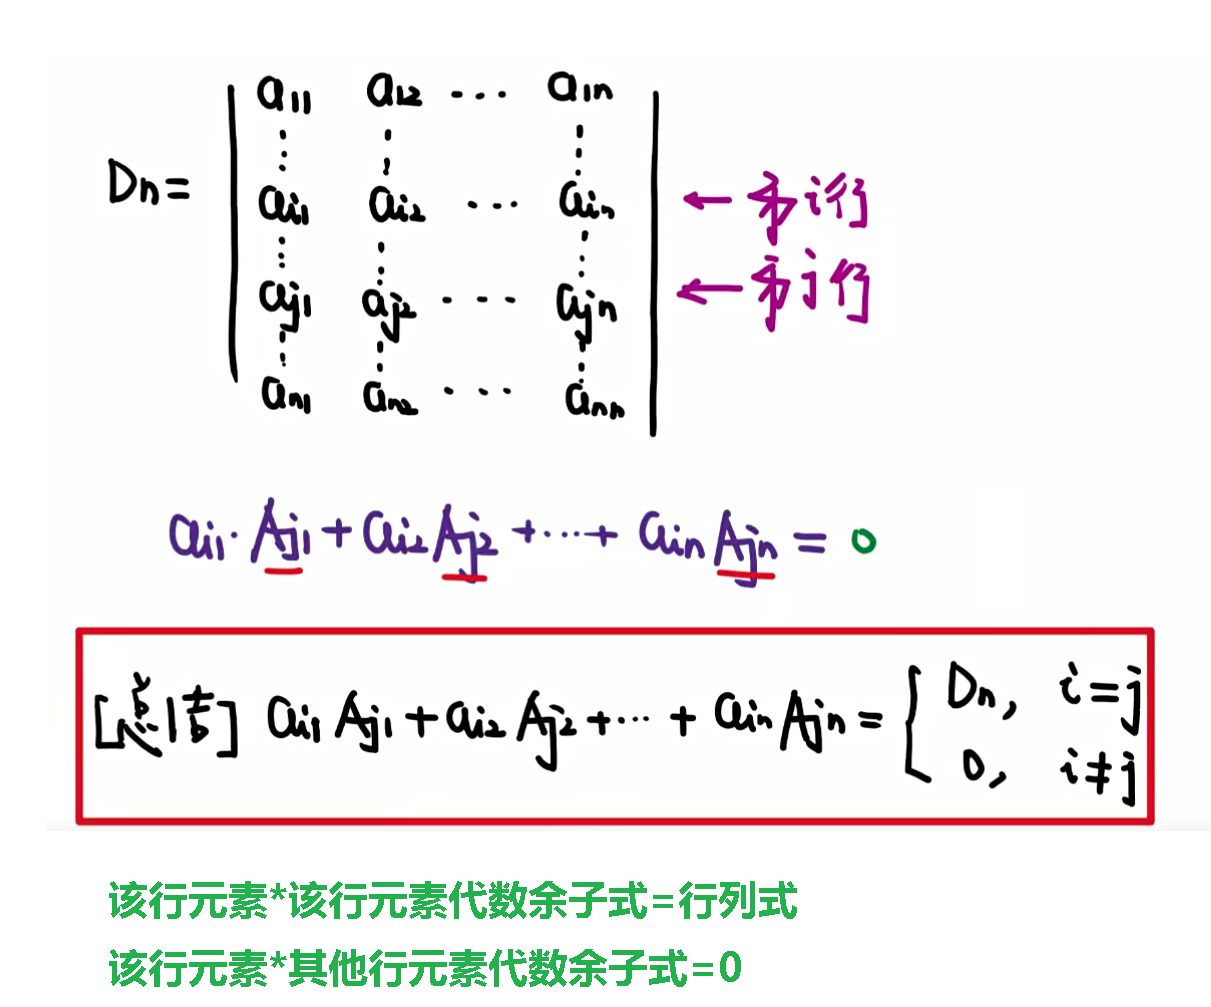 a11 a12 ··· a1n
Dn=
ai1 ai2 ··· ain ←第i行
aj1 aj2 ··· ajn ←第j行
an1 an2 ··· ann
ai1·Aj1+ai2Aj2+···+ainAjn=0
[总结] ai1Aj1+ai2Aj2+···+ainAjn={Dn, i=j
0, i≠j
该行元素*该行元素代数余子式=行列式
该行元素*其他行元素代数余子式=0